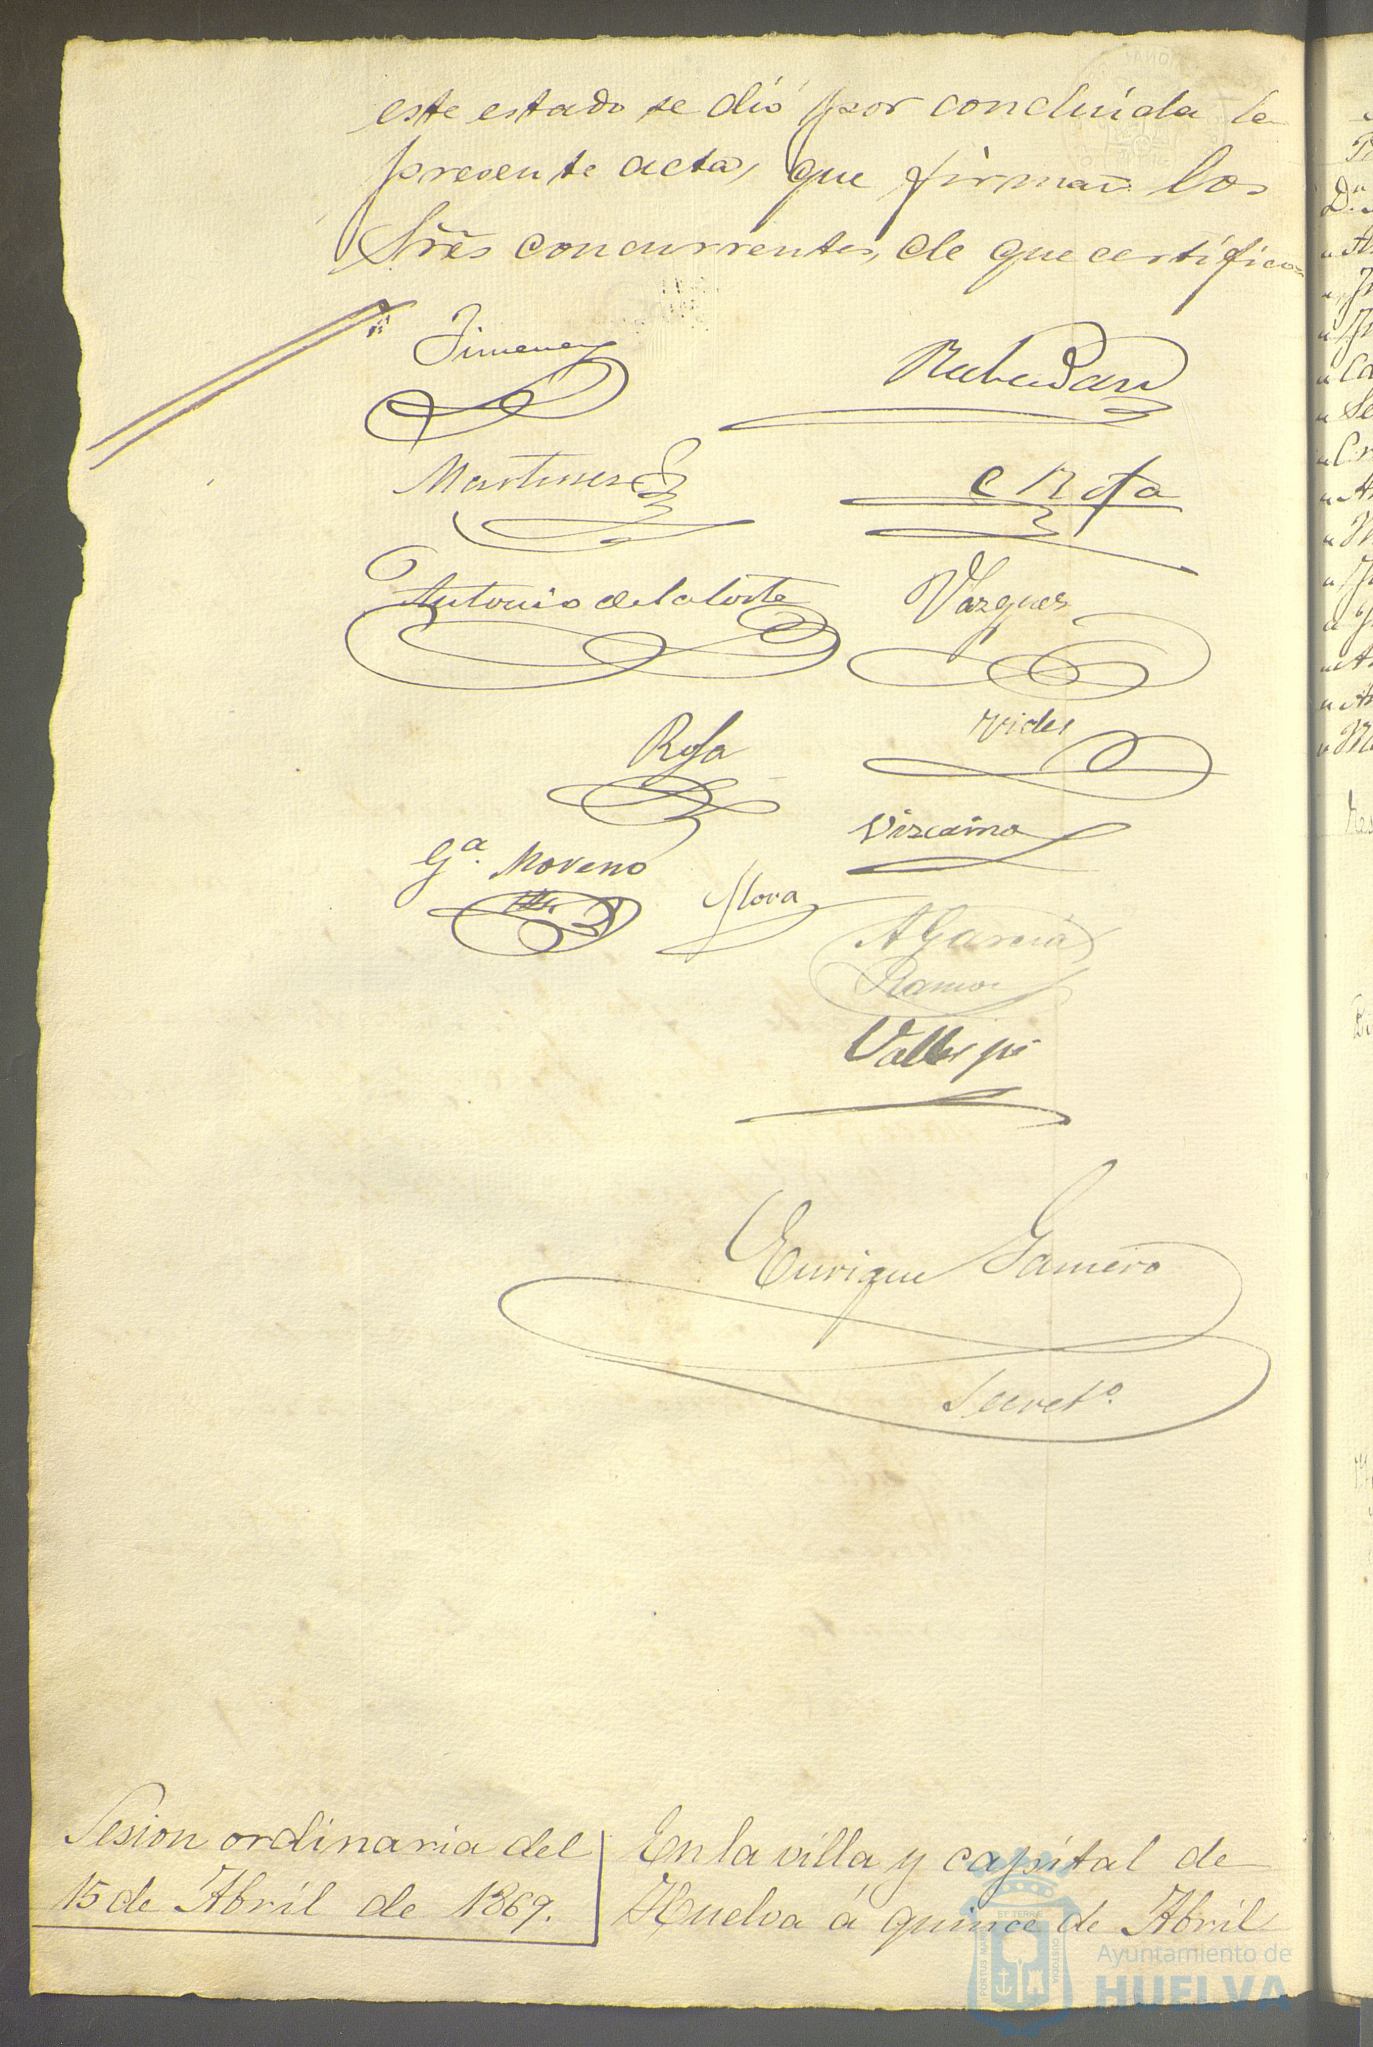 este estado se dió por concluida la
presente acta, que firman los
Sres concurrentes, de que certifico
Jimenez
Rabadan
Martinez
C Rota
Antonio de la Corte
Vazquez
Vides
Rosa
Vizcaino
Ga. Moreno
Mora
A Garcia
Ramos
Enrique Gamero
Secreto.
Sesion ordinaria del
15 de Abril de 1869.
En la villa y capital de
Huelva á quince de Abril
Ayuntamiento de
HUELVA
PORTUS MARIS
ET TERRE
CUSTODIA